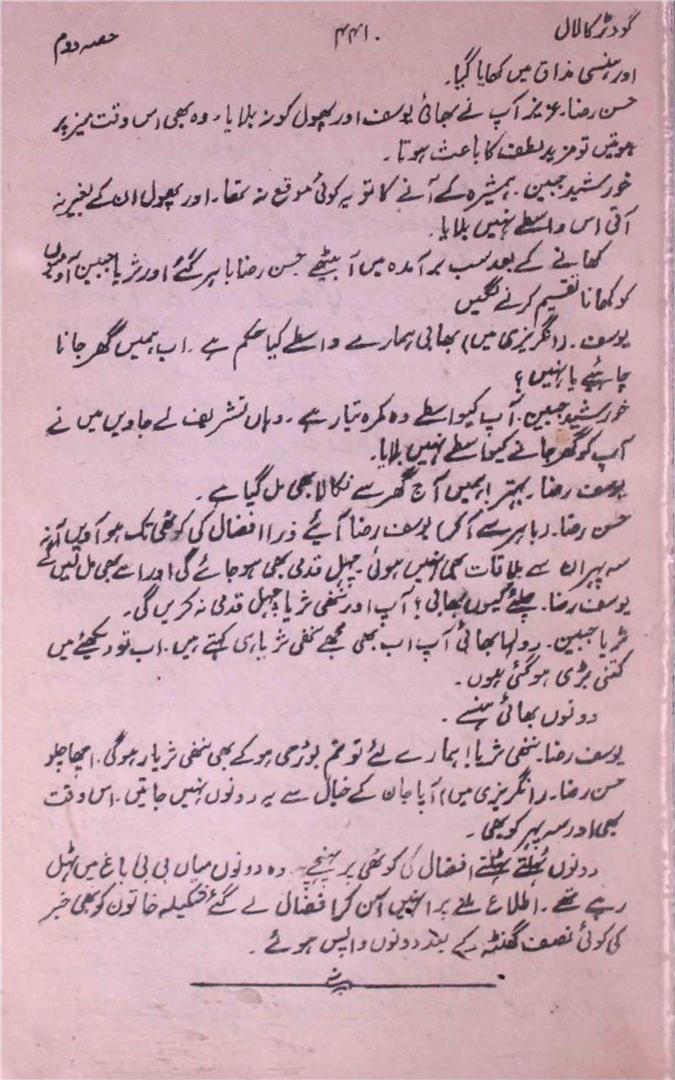 گودڑ کا لال ۴۴۱۰ حصہ دوم
اور ہنسی مذاق میں کھایا گیا۔
حسن رضا۔ عزیز آپ نے بھائی یوسف اور پھول کو نہ بلایا۔ وہ بھی اس وقت میز پر
ہوتیں تو مزید لطف کا باعث ہوتا۔
خورشید جبین۔ ہمشیرہ کے آنے کا تو یہ کوئی موقع نہ تھا۔ اور پھول ان کے بغیر نہ
آتی اس واسطے نہیں بلایا۔
کھانے کے بعد سب برآمدہ میں آ بیٹھے حسن رضا باہر گئے اور ثریا جبین آدمیوں
کو کھانا تقسیم کرنے لگیں
یوسف۔ (انگریزی میں) بھابی ہمارے واسطے کیا حکم ہے۔ اب ہمیں گھر جانا
چاہئیے یا نہیں؟
خورشید جبین۔ آپ کیواسطے وہ کمرہ تیار ہے۔ وہاں تشریف لے جاویں میں نے
آپ کو گھر جانے کیواسطے نہیں بلایا۔
یوسف رضا۔ بہتر! ہمیں آج گھر سے نکالا بھی مل گیا ہے۔
حسن رضا۔ (باہر سے آ کر) یوسف رضا آئیے ذرا افضال کی کوٹھی تک ہو آویں آج
سہ پہر ان سے ملاقات بھی نہیں ہوئی۔ چہل قدمی بھی ہو جائے گی اور اسے بھی مل لیں گے
یوسف رضا۔ چلئے کیوں بھابی؟ آپ اور ننھی ثریا چہل قدمی نہ کریں گی۔
ثریا جبین۔ دولہا بھائی آپ اب بھی مجھے ننھی ثریا ہی کہتے ہیں۔ اب تو دیکھئے میں
کتنی بڑی ہو گئی ہوں۔
دونوں بھائی ہنسے۔
یوسف رضا۔ ننھی ثریا! ہمارے لئے تو تم بوڑھی ہو کے بھی ننھی ثریا رہو گی۔ اچھا چلو
حسن رضا۔ (انگریزی میں) آپا جان کے خیال سے یہ دونوں نہیں جاتیں۔ اس وقت
بھی اور سہ پہر کو بھی۔
دونوں ٹہلتے ٹہلتے افضال کی کوٹھی پر پہنچے۔ وہ دونوں میاں بی بی باغ میں ٹہل
رہے تھے۔ اطلاع ملنے پر انہیں آن کر افضال لے گئے شکیلہ خاتون کو بھی خبر
کی کوئی نصف گھنٹہ کے بعد دونوں واپس ہوئے۔